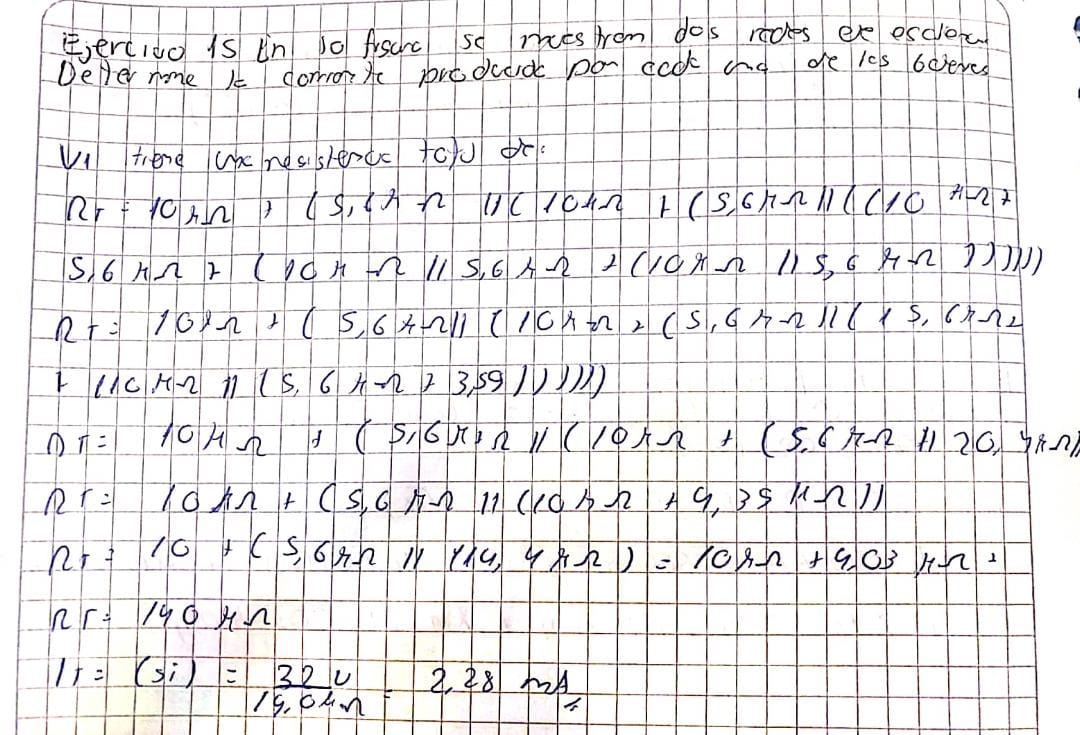 Ejercicio 15 En la figura se muestran dos redes en escalera
Determine la corriente producida por cada una de las baterías
V1 tiene una resistencia total de:
RT = 10kΩ + (5,6kΩ || (10kΩ + (5,6kΩ || ((10 kΩ +
5,6 kΩ + (10k Ω || 5,6 kΩ + (10kΩ || 5,6 kΩ ))))))
RT = 10kΩ + ( 5,6kΩ || (10kΩ + (5,6kΩ || (15,6kΩ
+ (10kΩ || (5,6 kΩ + 3,59))))))
RT = 10kΩ + ( 5,6kΩ || (10kΩ + (5,6kΩ || 20,4kΩ))
RT = 10kΩ + (5,6kΩ || (10kΩ + 4,39kΩ))
RT = 10 + (5,6kΩ || (14,4kΩ) = 10kΩ + 4,03kΩ =
RT = 140 kΩ
IT = (si) = 32 V / 14,0kΩ = 2,28 mA